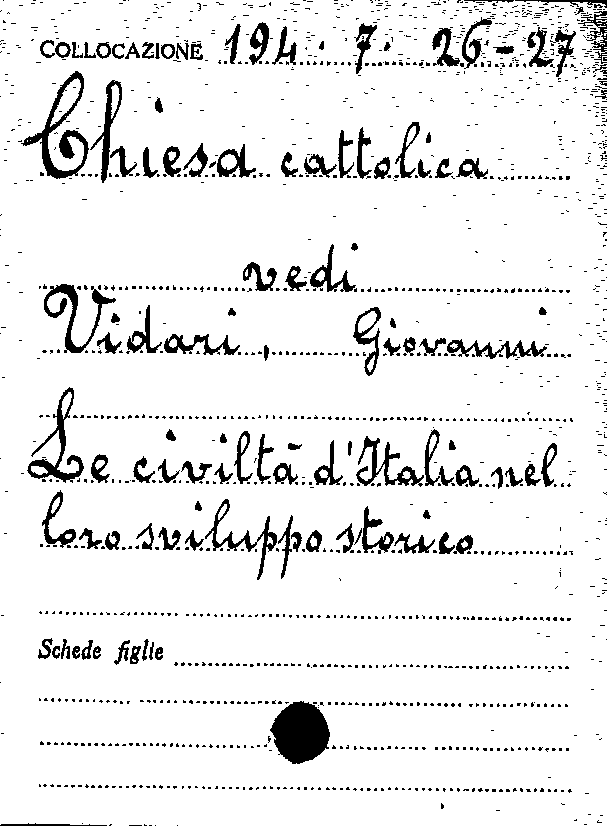 COLLOCAZIONE 194. 7. 26-27
Chiesa cattolica
vedi
Vidari, Giovanni
Le civiltà d'Italia nel
loro sviluppo storico
Schede figlie